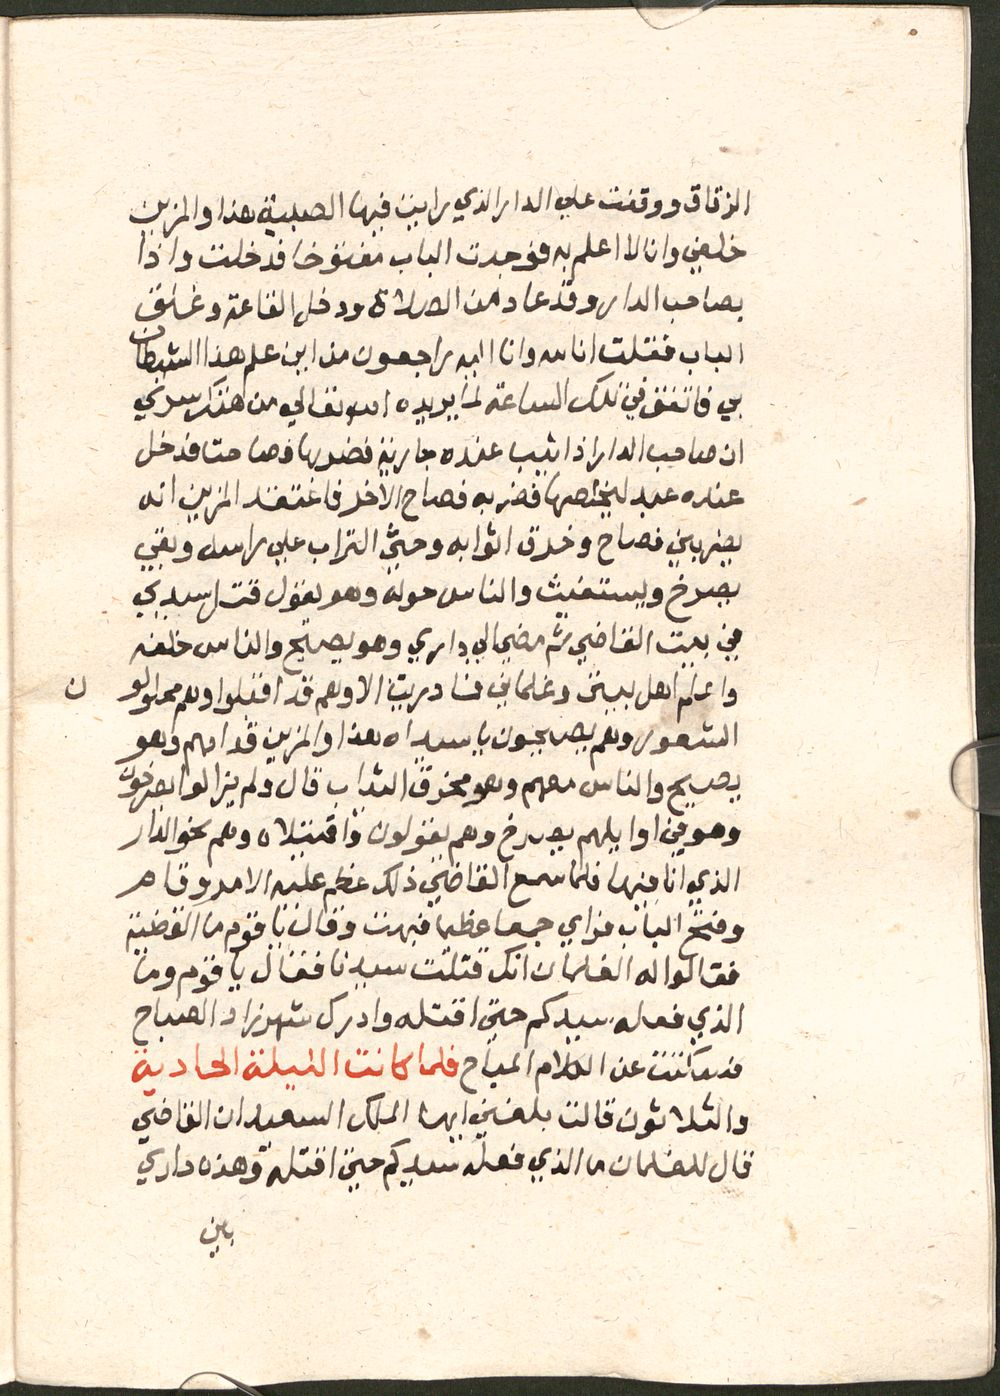 الزقاق ووقفت علي الدار الذي رايت فيها الصبية هذا والمزين
خلفي وانا لا اعلم به فوجدت الباب مفتوحا فدخلت واذا
بصاحب الدار وقد عاد من الصلاة ودخل القاعة وغلق
الباب فقلت انا لله وانا اليه راجعون من اين علم هذا الشيطان
بي فاتفق في تلك الساعة لما يريده الله تعالي من هتك ستري
ان صاحب الدار اذ اتيب عنده جارية فضربها فصاحت فدخل
عنده عبد ليخلصها فضربه فصاح الاخر فاعتقد المزين انه
يضربني فصاح وخرق اثوابه وحثي التراب علي راسه وبقي
يصرخ ويستغيث والناس حوله وهو يقول قتل سيدي
في بيت القاضي ثم مضي الي داري وهو يصيح والناس خلفه
واعلم اهل بيتي وغلماني فما دريت الا وهم قد اقبلوا وهم محلولو ن
الشعور وهم يصيحون يا سيداه هذا والمزين قدامهم وهو
يصيح والناس معهم وهو مخرق الثياب قال ولم يزالوا يصرخون
وهو في اوايلهم يصرخ وهم يقولون واقتيلاه وهم نحو الدار
الذي انا فيها فلما سمع القاضي ذلك عظم عليه الامر وقام
وفتح الباب فراي جمعا عظيما فبهت وقال يا قوم ما القضية
فقالوا له الغلمان انك قتلت سيدنا فقال يا قوم وما
الذي فعله سيدكم حتي اقتله وادرك شهرزاد الصباح
فسكتت عن الكلام المباح فلما كانت الليلة الحادية
والثلاثون قالت بلغني ايها الملك السعيد ان القاضي
قال للغلمان ما الذي فعله سيدكم حتي اقتله وهذه داري
بين